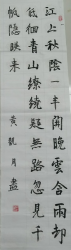 江上秋陰一半開晚雲含雨却
低徊青山繚繞疑無路忽見千
帆隱映來 黃凱月書